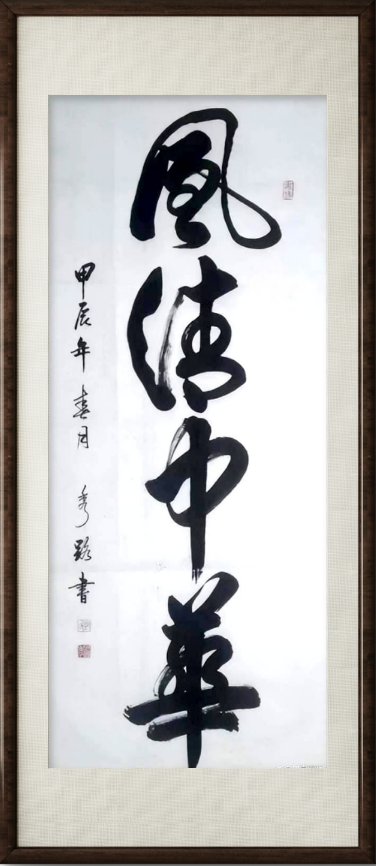 風清中華
甲辰年 春月 秀路書